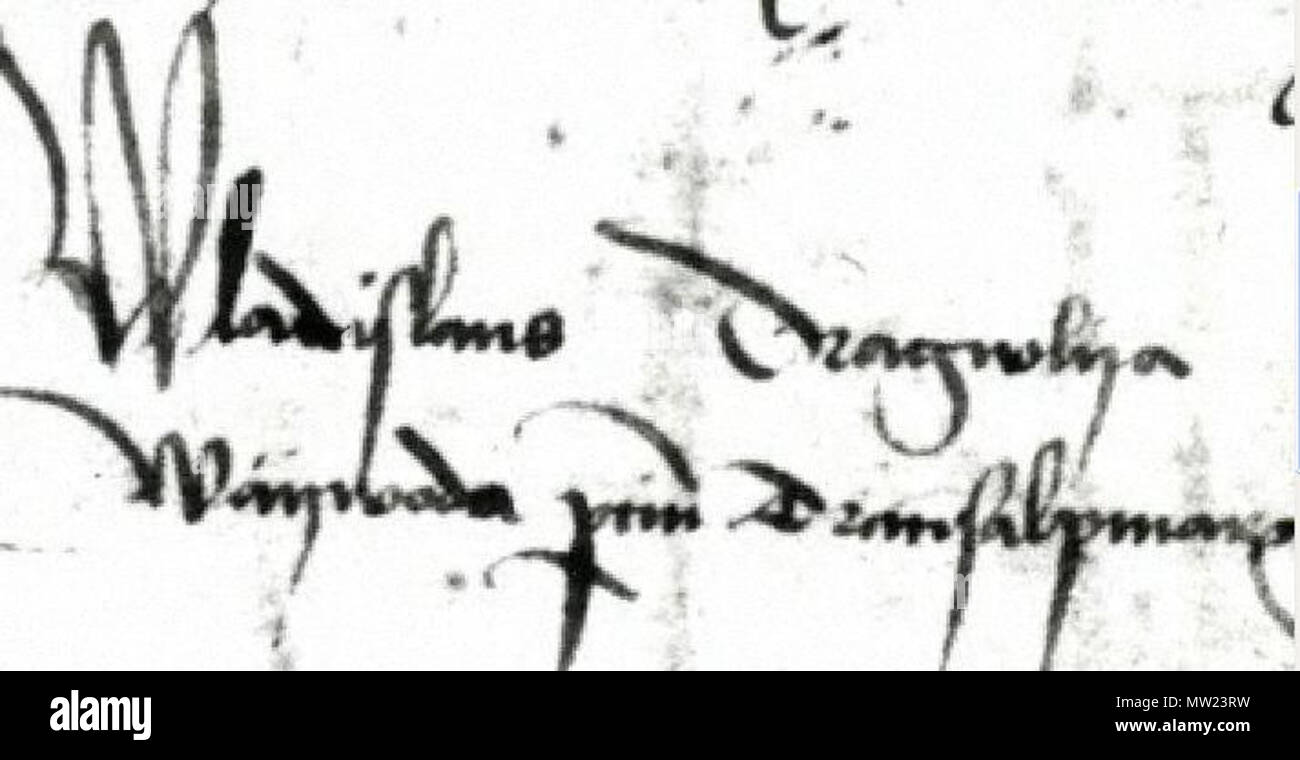 Wladislaus Dragwlya
Waywoda p[ar]tiu[m] Transalpinarum
alamy
Image ID: MW23RW
www.alamy.com